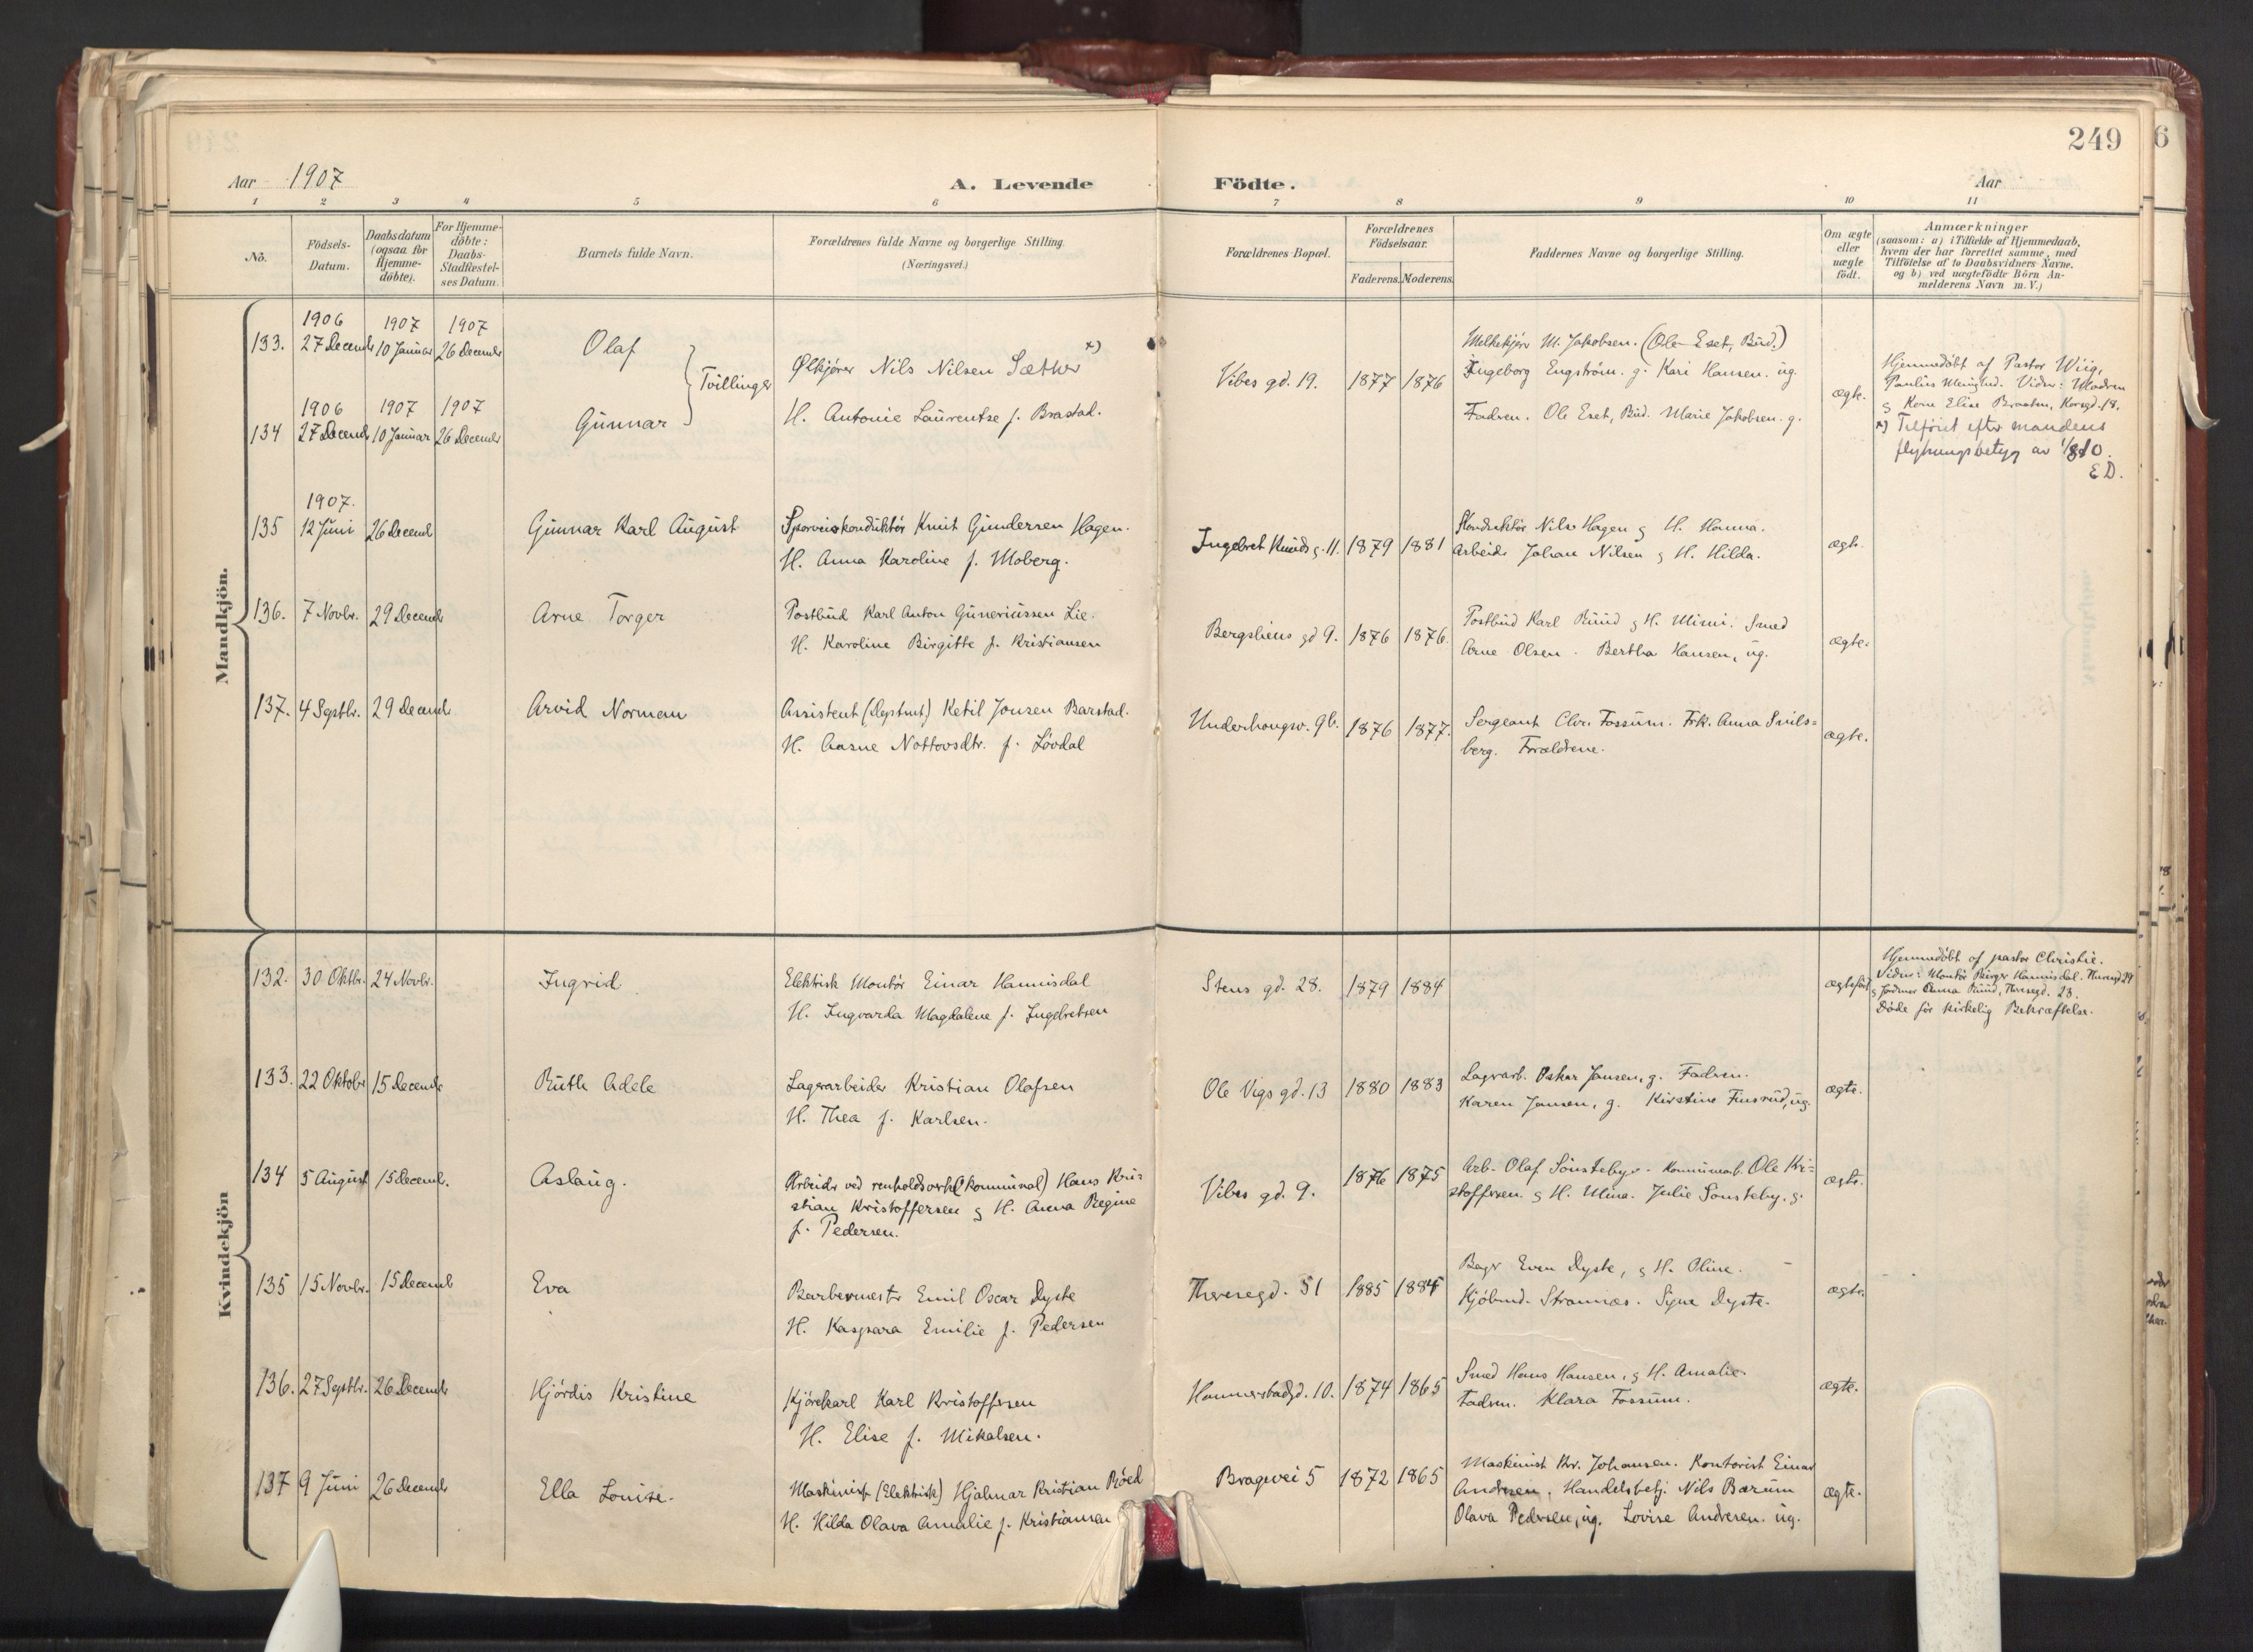 249
Aar 1907
A. Levende Födte.
Aar
1 2 3 4 5 6 7 8 9 10 11
No.
Födsels-Datum.
Daabsdatum (ogsaa for Hjemme-döbte).
For Hjemme-döbte: Daabs-Stadfæstel-ses Datum.
Barnets fulde Navn.
Forældrenes fulde Navne og borgerlige Stilling.
(Næringsvei.)
Forældrenes Bopæl.
Forældrenes Födselsaar.
Faderens. Moderens.
Faddernes Navne og borgerlige Stilling.
Om ægte eller uægte födt.
Anmærkninger
(saasom: a) i Tilfælde af Hjemmedaab,
hvem der har forrettet samme, med
Tilföielse af to Daabsvidners Navne.
og b) ved uægtefödte Börn An-
melderens Navn m. V.)
Mandkjön.
1906 1907 1907
133. 27 Decembr 10 Januar 26 Decembr Olaf
Tvillinger
Ølkjører Nils Nilsen Sæther x)
H. Antonie Laurentse f. Brastad.
Vibes gd. 19. 1877 1876
Melkekjører M. Jakobsen. (Ole Eset, Bud.)
Ingeborg Engström. g. Kari Hansen. ug.
Fadren. Ole Eset, Bud. Marie Jakobsen. g.
ægte.
Hjemmedöbt af Pastor Wiig,
Paulus Menighd. Vidner: Modren
& Kone Elise Braaten, Korsgd. 18.
x) Tilföiet efter mandens
flytningsbetyg av 1/8 10.
E D.
1906 1907 1907
134 27 Decembr 10 Januar 26 Decembr Gunnar
1907.
135 12 Juni 26 Decembr Gunnar Karl August
Sporveiskonduktör Knut Gundersen Hagen.
H. Anna Karoline f. Moberg.
Ingebret Knuds g. 11. 1879 1881
Konduktör Nils Hagen & H. Hanna.
Arbeider Johan Nilsen & H. Hilda.
ægte.
136. 7 Novbr. 29 Decembr Arne Torger
Postbud Karl Anton Guneriussen Lie.
H. Karoline Birgitte f. Kristiansen
Bergsliens gd 9. 1876 1876.
Postbud Karl Ruud & H. Mimi. Smed
Arne Olsen. Bertha Hansen, ug.
ægte.
137. 4 Septbr. 29 Decembr Arvid Norman
Assistent Ketil Jonsen Barstad.
H. Aasne Nottovsdtr. f. Lövdal
Underhaugsv. 9b. 1876 1877.
Sergeant Chr. Fossum. Frk. Anna Smils=
berg. Forældrene.
ægte.
Kvindekjön
132. 30 Oktbr. 24 Novbr. Ingrid
Elektrisk Montör Einar Hannisdal
H. Ingvarda Magdalene f. Ingebretsen
Stens gd. 28. 1879 1884
ægtefödt
Hjemmedöbt af pastor Christie.
Vidner: Montör Birger Hannisdal. Theresgd 29
& Jordmor Anna Ruud, Theresegd. 23.
Döde för kirkelig Bekræftelse.
133. 22 Oktobr 15 Decembr Ruth Adele
Lagerarbeider Kristian Olafsen
H. Thea f. Karlsen.
Ole Vigs gd. 13 1880 1883
Lagerarb. Oskar Jansen, g. Fadren.
Karen Jansen, g. Kirstine Finsrud, ug.
ægte.
134 5 August 15 Decemb. Aslaug.
Arbeider ved renholdsverket (Kommunal) Hans Kri=
stian Kristoffersen & H. Anna Regine
f. Pedersen.
Vibes gd. 9. 1876 1875
Arb. Olaf Sönsteby. Kommunearb. Ole Kri=
stoffersen. & H. Mina. Julie Sönsteby. g.
ægte.
135 15 Novbr. 15 Decemb Eva
Barbermester Emil Oscar Dyste
H. Kaspara Emilie f. Pedersen
Theresegd. 51 1885 1884
Bager Even Dyste, & H. Oline.
Kjöbmd. Strannæs. Signe Dyste.
ægte.
136. 27 Septbr. 26 Decembr Hjördis Kristine
Kjörekarl Karl Kristoffersen
H. Elise f. Mikalsen.
Hammerstadgd. 10. 1874 1865
Smed Hans Hansen, & H. Amalie.
Fadren. Klara Fossum.
ægte.
137 9 Juni 26 Decembr Ella Louise.
Maskinist (Elektrisk) Hjalmar Kristian Röed
H. Hilda Olava Amalie f. Kristiansen
Bragevei 5 1872 1865
Maskinist Kr. Johansen. Kontorist Einar
Andresen. Handelsbetj. Nils Bærum
Olava Pedersen, ug. Lovise Andresen. ug.
ægte.